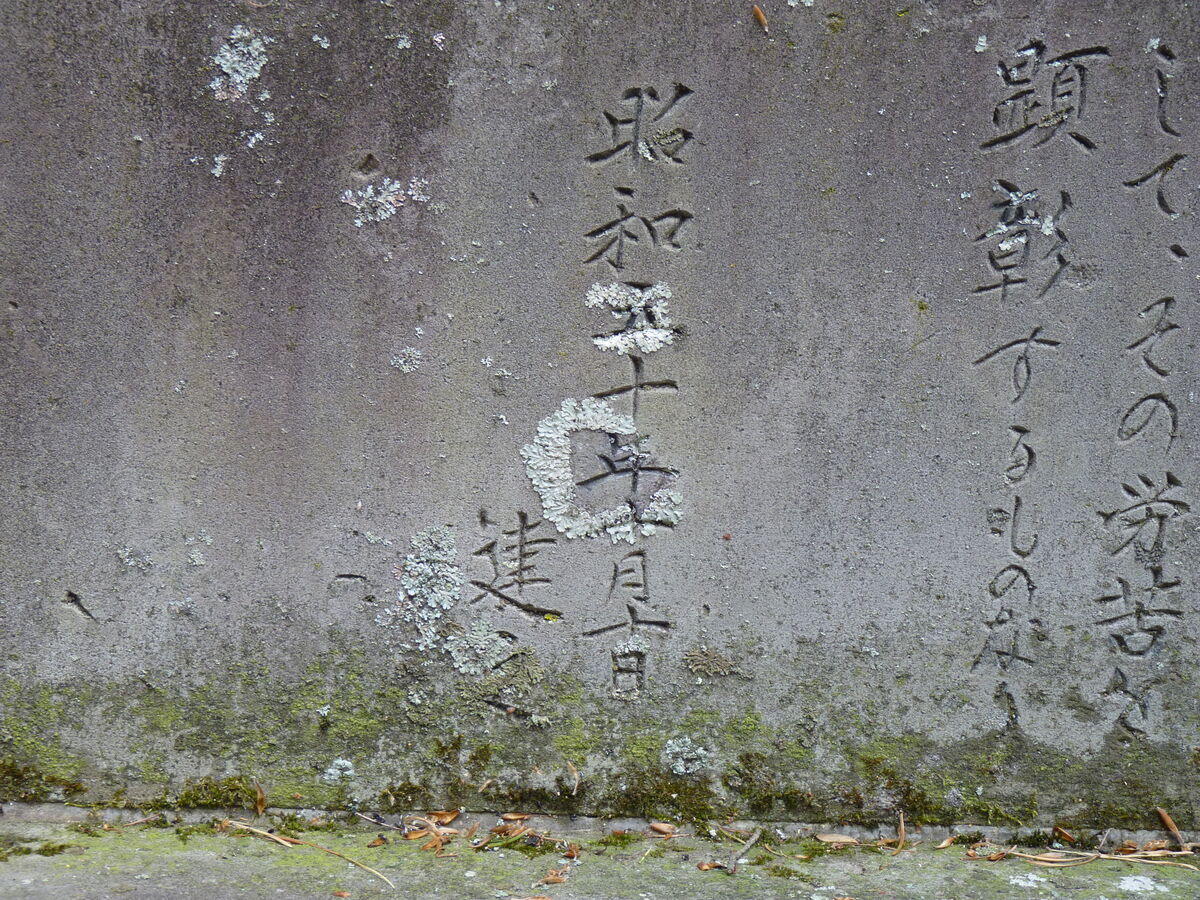 して、その労苦を
顕彰するものなり
昭和五十年十月十日
建之